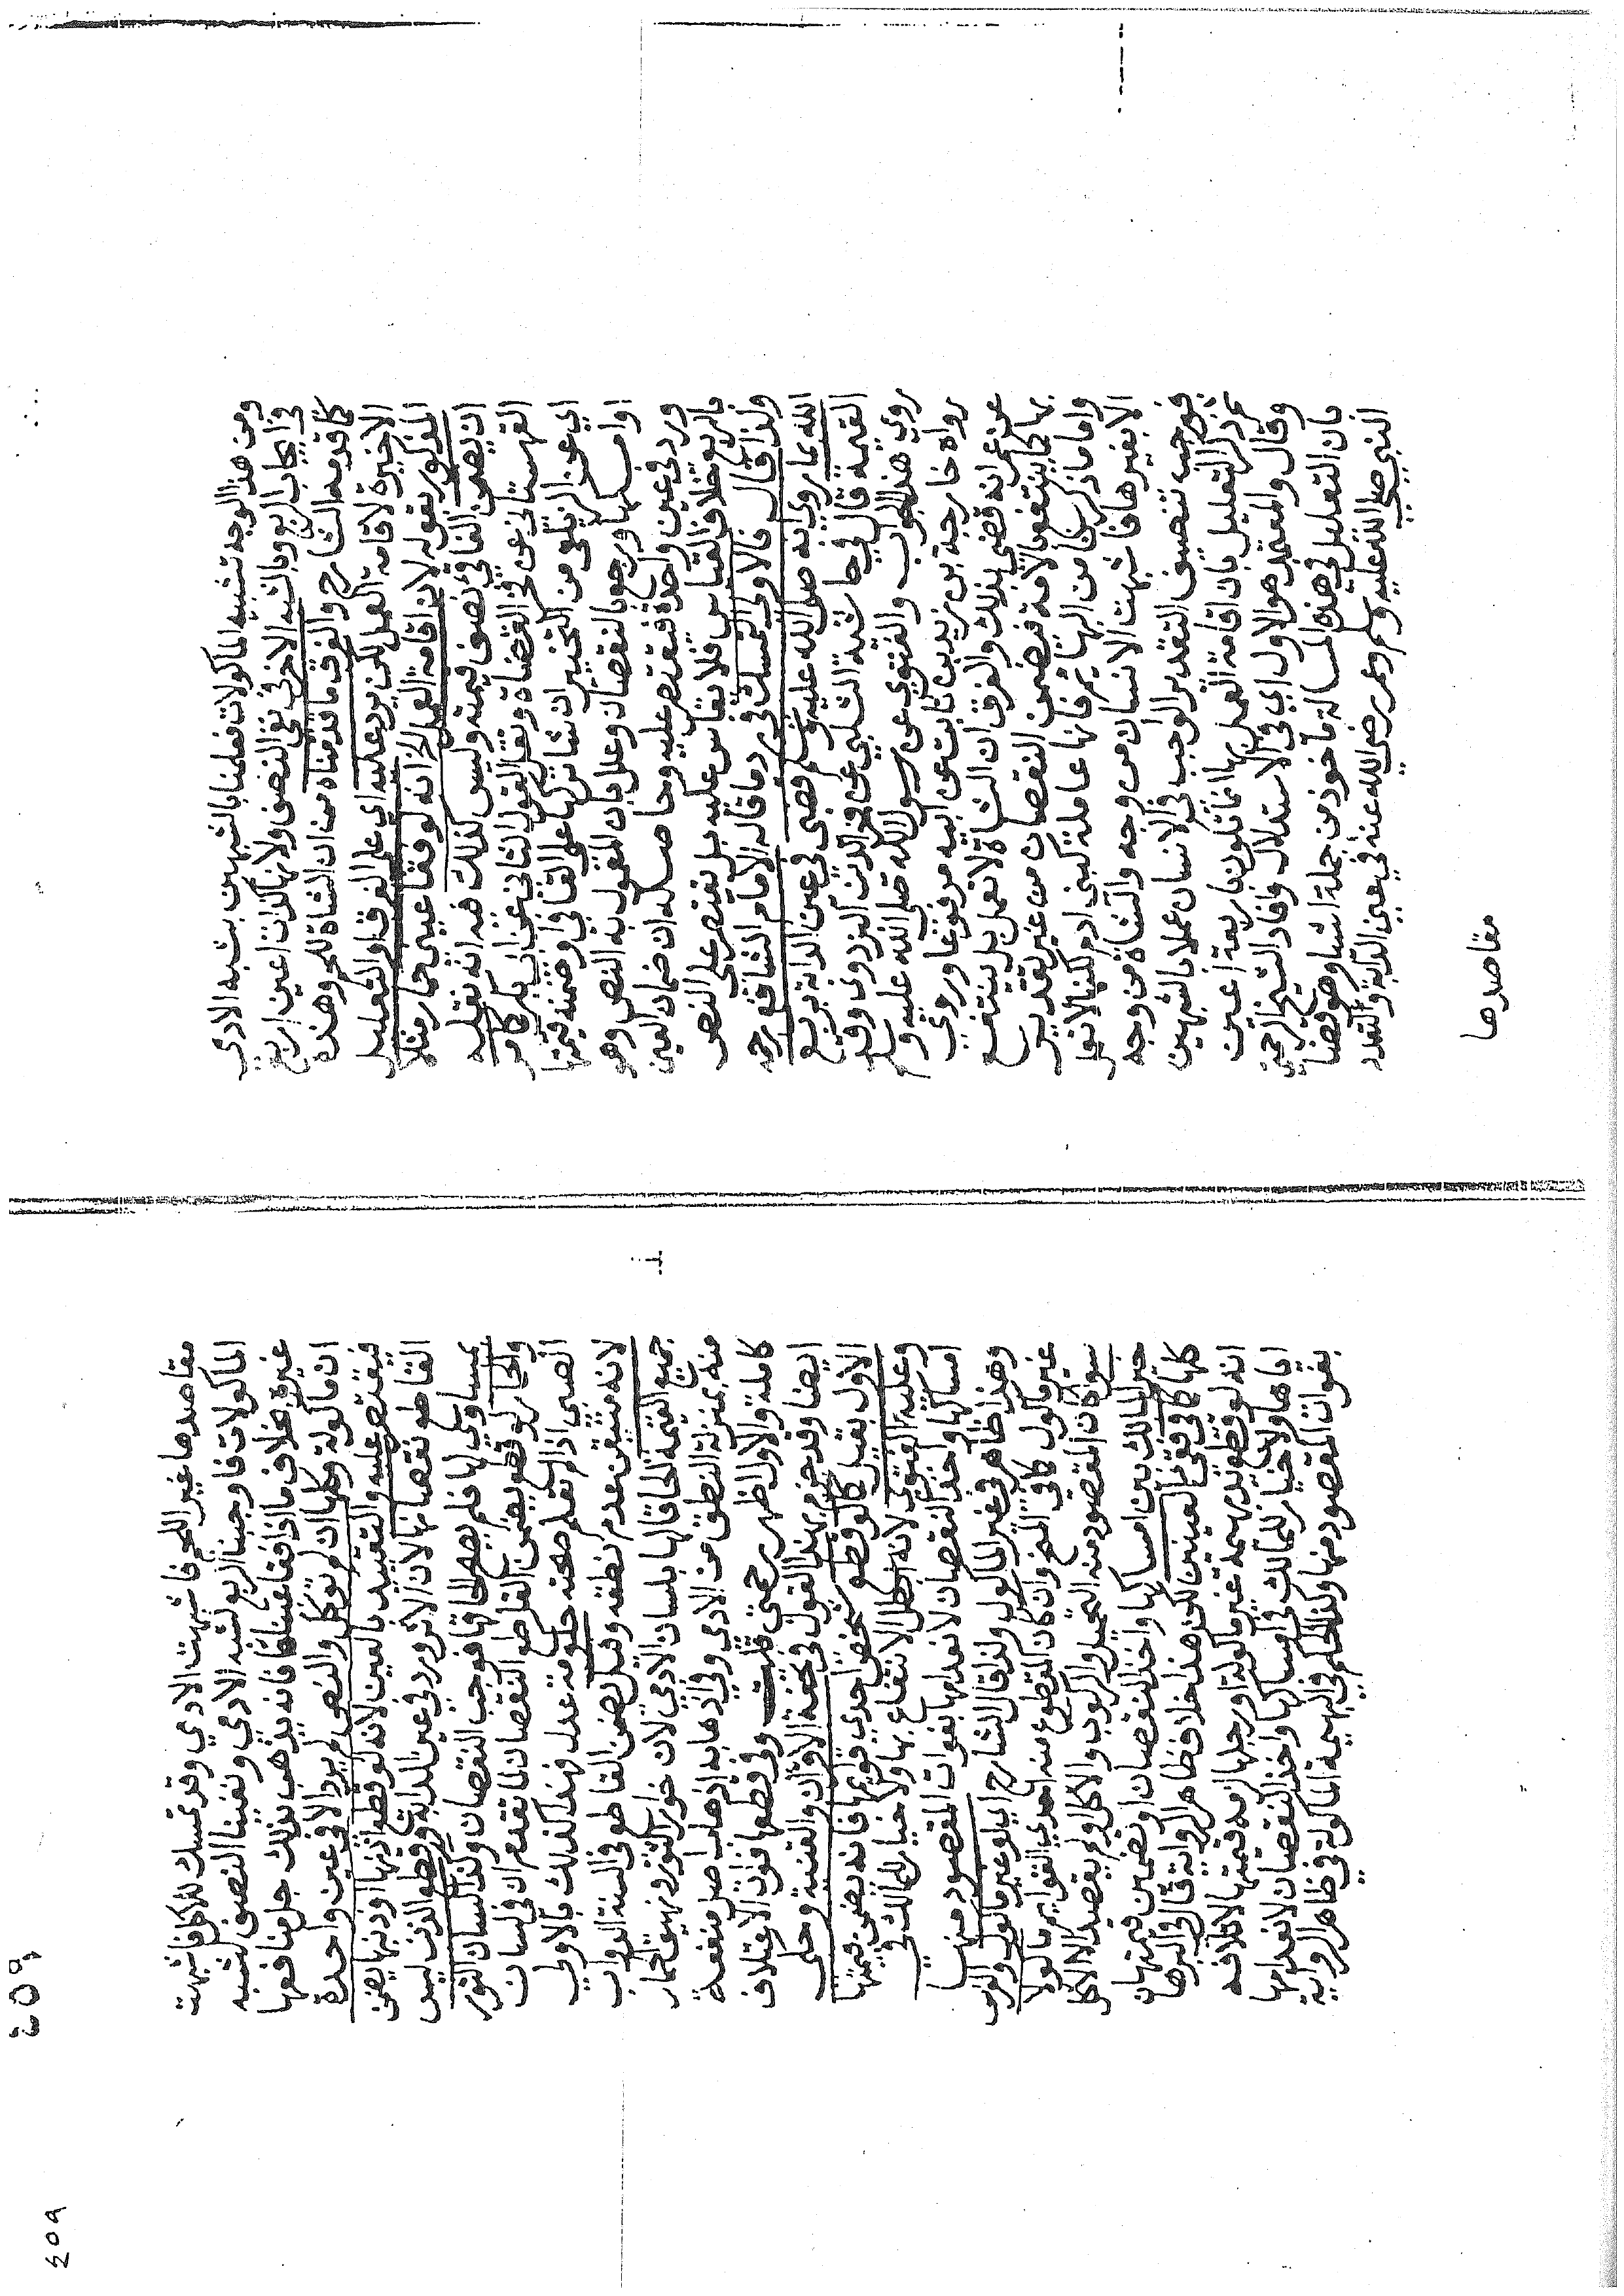 ومن هذا الوجه تشبيه الماكولات فعلمنا بالشبهين بشبه الادمي
في ايجاب الربع وبالشبه الاخر في نفي النصف ولانها كذات اعين اربع
كما قدمه الشارح والفرق ما قدمناه من ان الشاة للحم وهذه
الاخيرة لاقامة العمل لكن يرد عليه اي على الفرق او التعليل
المذكور بقوله لان اقامة العمل الخ انه لو فقا عيني حمار مثلا
ان يضمن الفاقئ نصف قيمته وليس كذلك هذا انه نقله
القهستاني عن فخر القضاة ونقل القول الثاني عن اب بكر كامر
اي عجز الزيلعي من التخيير ان شا تركها على الفاقي وضمنه قيمتها
او امسكها ورجع بالنقصان وعلل بان المعمول به النص وهو
ورد في عين واحدة فيقتصر عليه وحاصله ان ضمان العين
بالربع خلاف القياس فلا يقاس عليه بل يقتصر على النص
ولذا قال فالاولى التمسك في رد ما قاله الامام الشافعي رحمه
الله بما روي انه صلى الله عليه وسلم قضى في عين الدابة بربع
القيمة قال في حاشية الشلبي عن فخر الدين البزدوي وقد
روي هذا الجواب والفتوى عن رسول الله صلى الله عليه وسلم
رواه خارجة بن زيد بن ثابت عن ابيه مرفوعا وروي
عن عمر انه قضى بذلك والفرق ان الشاة لا تعمل بل ينتفع
بها كما ينتفع بالامة فيضمن النقصان من غير تقدير
واما ما ذكرنا من البهايم فانها عاملة كبني ادم لكنها لا تقوم
الا بغيرها فاشبهت الانسان من وجه والشاة من وجه
فوجب تنصيف التقدير الواجب في الانسان عملا بالشبهين
ثم ذكر التعليل بان اقامة العمل بها انما تكون باربعة اعين
وقال والمعتمد هو الاول اي في الاستدلال وافاد الشيخ الرحمتي
بان التعليل في هذه المسالة ماخوذ من جملة اشيا وهو قضا
النبي صلى الله عليه وسلم وعمر رضي الله عنه في عين الدابة والتعدد
مقاصدها
مقاصدها غير اللحم فاشبهت الادمي وقد تمسك للاكل فاشبهت
الماكولات فاوجبنا الربع لشبه الادمي ونفينا النصف لشبه
غيره بخلاف ما اذا فقا عينيها فانه يذهب بذلك جل منافعها
ان ماكولة وكلها ان لم توكل والنص لم يرد الا في عين واحدة
فيقتصر عليه والتقييد بالعين لانه لو قطع اذنها او ذنبها يضمن
القاطع نقصانها لان الاثر ورد في عين الدابة وقطع الذنب ليس
بمساوي لها فلم يصح الحاقها فوجب النقصان ولذا لسان الثور
والحمار لو قطع يضمن القاطع النقصان لما تقدم ان في لسان
الصبي اذا لم يعلم صحته حكومة عدل فهذا كذلك بالاولى
لانه متيقن عدم نطقه وقيل يضمن القاطع في السنة الدواب
جميع القيمة الحاقا لها بلسان الادمي لان خوار الثور ونهيق الحمار
منه بمنزلة النطق من الادمي وفي اذهابه اذهاب اصل منفعة
كاملة والاول اظهر رحمتي قلت وفي قطعها فوات الاعتلاف
ايضا وقد جزم بهذا القول في تحفة الاقران والقنية وحكى
الاول بقيل كما لو قطع شخص احدى قوايمها فانه يضمن قيمتها
وعليه الفتوى لانه ابطل الانتفاع بها ولا خيار للمالك في
امساكها واخذ النقصان لانعدامها بفوات المقصود منها
وهذا ظاهر في غير الماكول ولذا قال الشارح اي لو غير ماكول والفرس
غير ماكول كما في المنح وان كان المقطوع منه احدى القوايم ماكولا
سوا كان المقصود منه الحمل والركوب والاكل او لم يقصد الا الاكل
خير المالك بين امساكها واخذ النقصان او تضمين قيمتها
كلها كما في فقئ العينين لكن هذا خلاف ظاهر الرواية قال في البرهان
انه لو قطع يد بهيمة غير ماكولة او رجلها لزمه قيمتها لاتلافه
اياها ولا خيار للمالك في امساكها واخذ النقصان لانعدامها
بفوات المقصود منها وكذا الحكم في البهيمة الماكولة في ظاهر الرواية
٤٥٩
٤٥٩